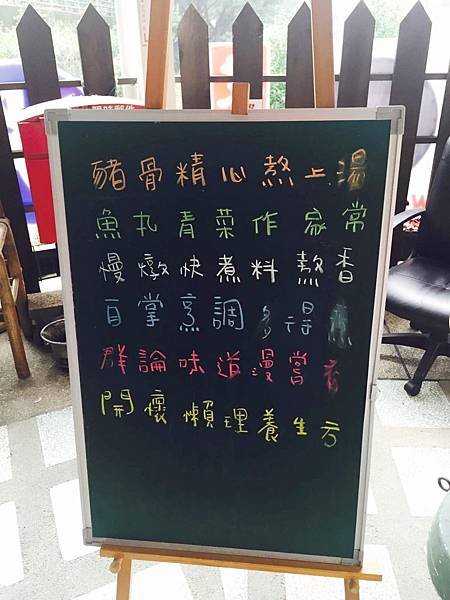 限時郵件
豬骨精心熬上湯
魚丸青菜作家常
慢燉快煮料熬香
百掌烹調多得
群論味道漫嘗
開懷懶理養生方